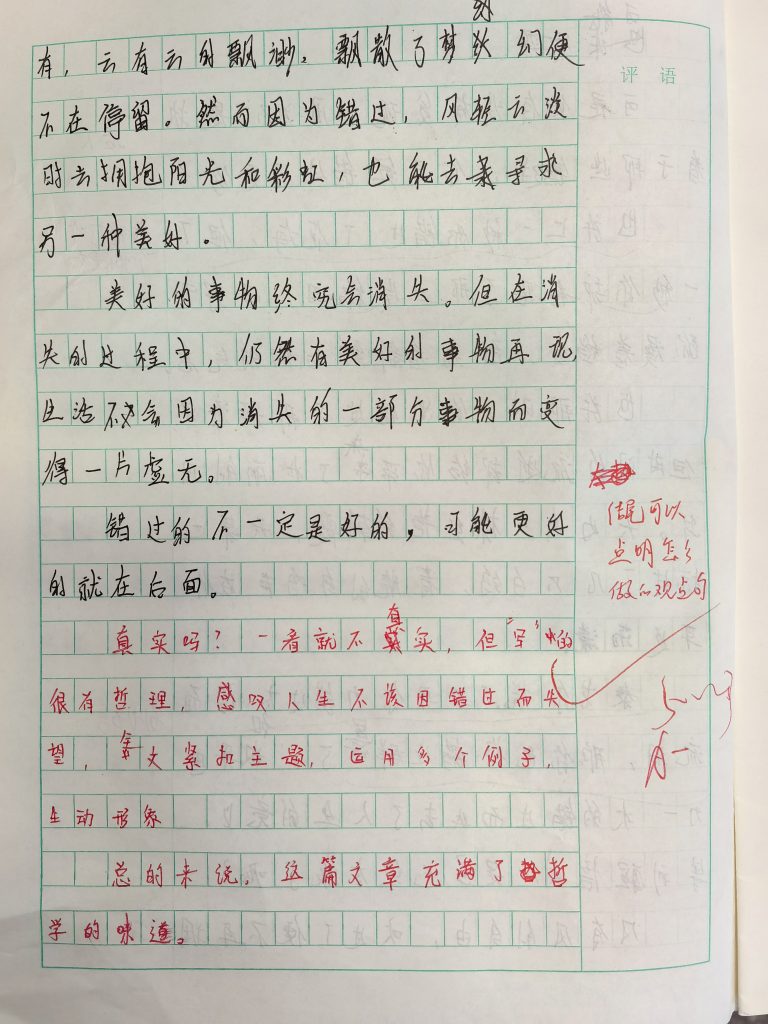 有，云有云的飘渺。飘散了梦幻便
不在停留。然而因为错过，风轻云淡
时去拥抱阳光和彩虹，也能去寻求
另一种美好。
美好的事物终究会消失。但在消
失的过程中，仍然有美好的事物再现，
生活不会因为消失的一部分事物而变
得一片虚无。
错过的不一定是好的，可能更好
的就在后面。
评 语
结尾可以
点明怎么
做的观点句
真实吗？一看就不真实，但"写"的
很有哲理，感叹人生不该因错过而失
望，全文紧扣主题，运用多个例子，
生动形象
总的来说，这篇文章充满了哲
学的味道。